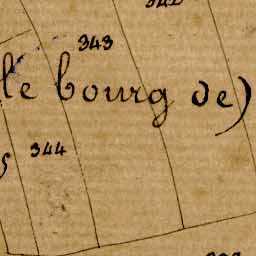 343
le bourg de)
344